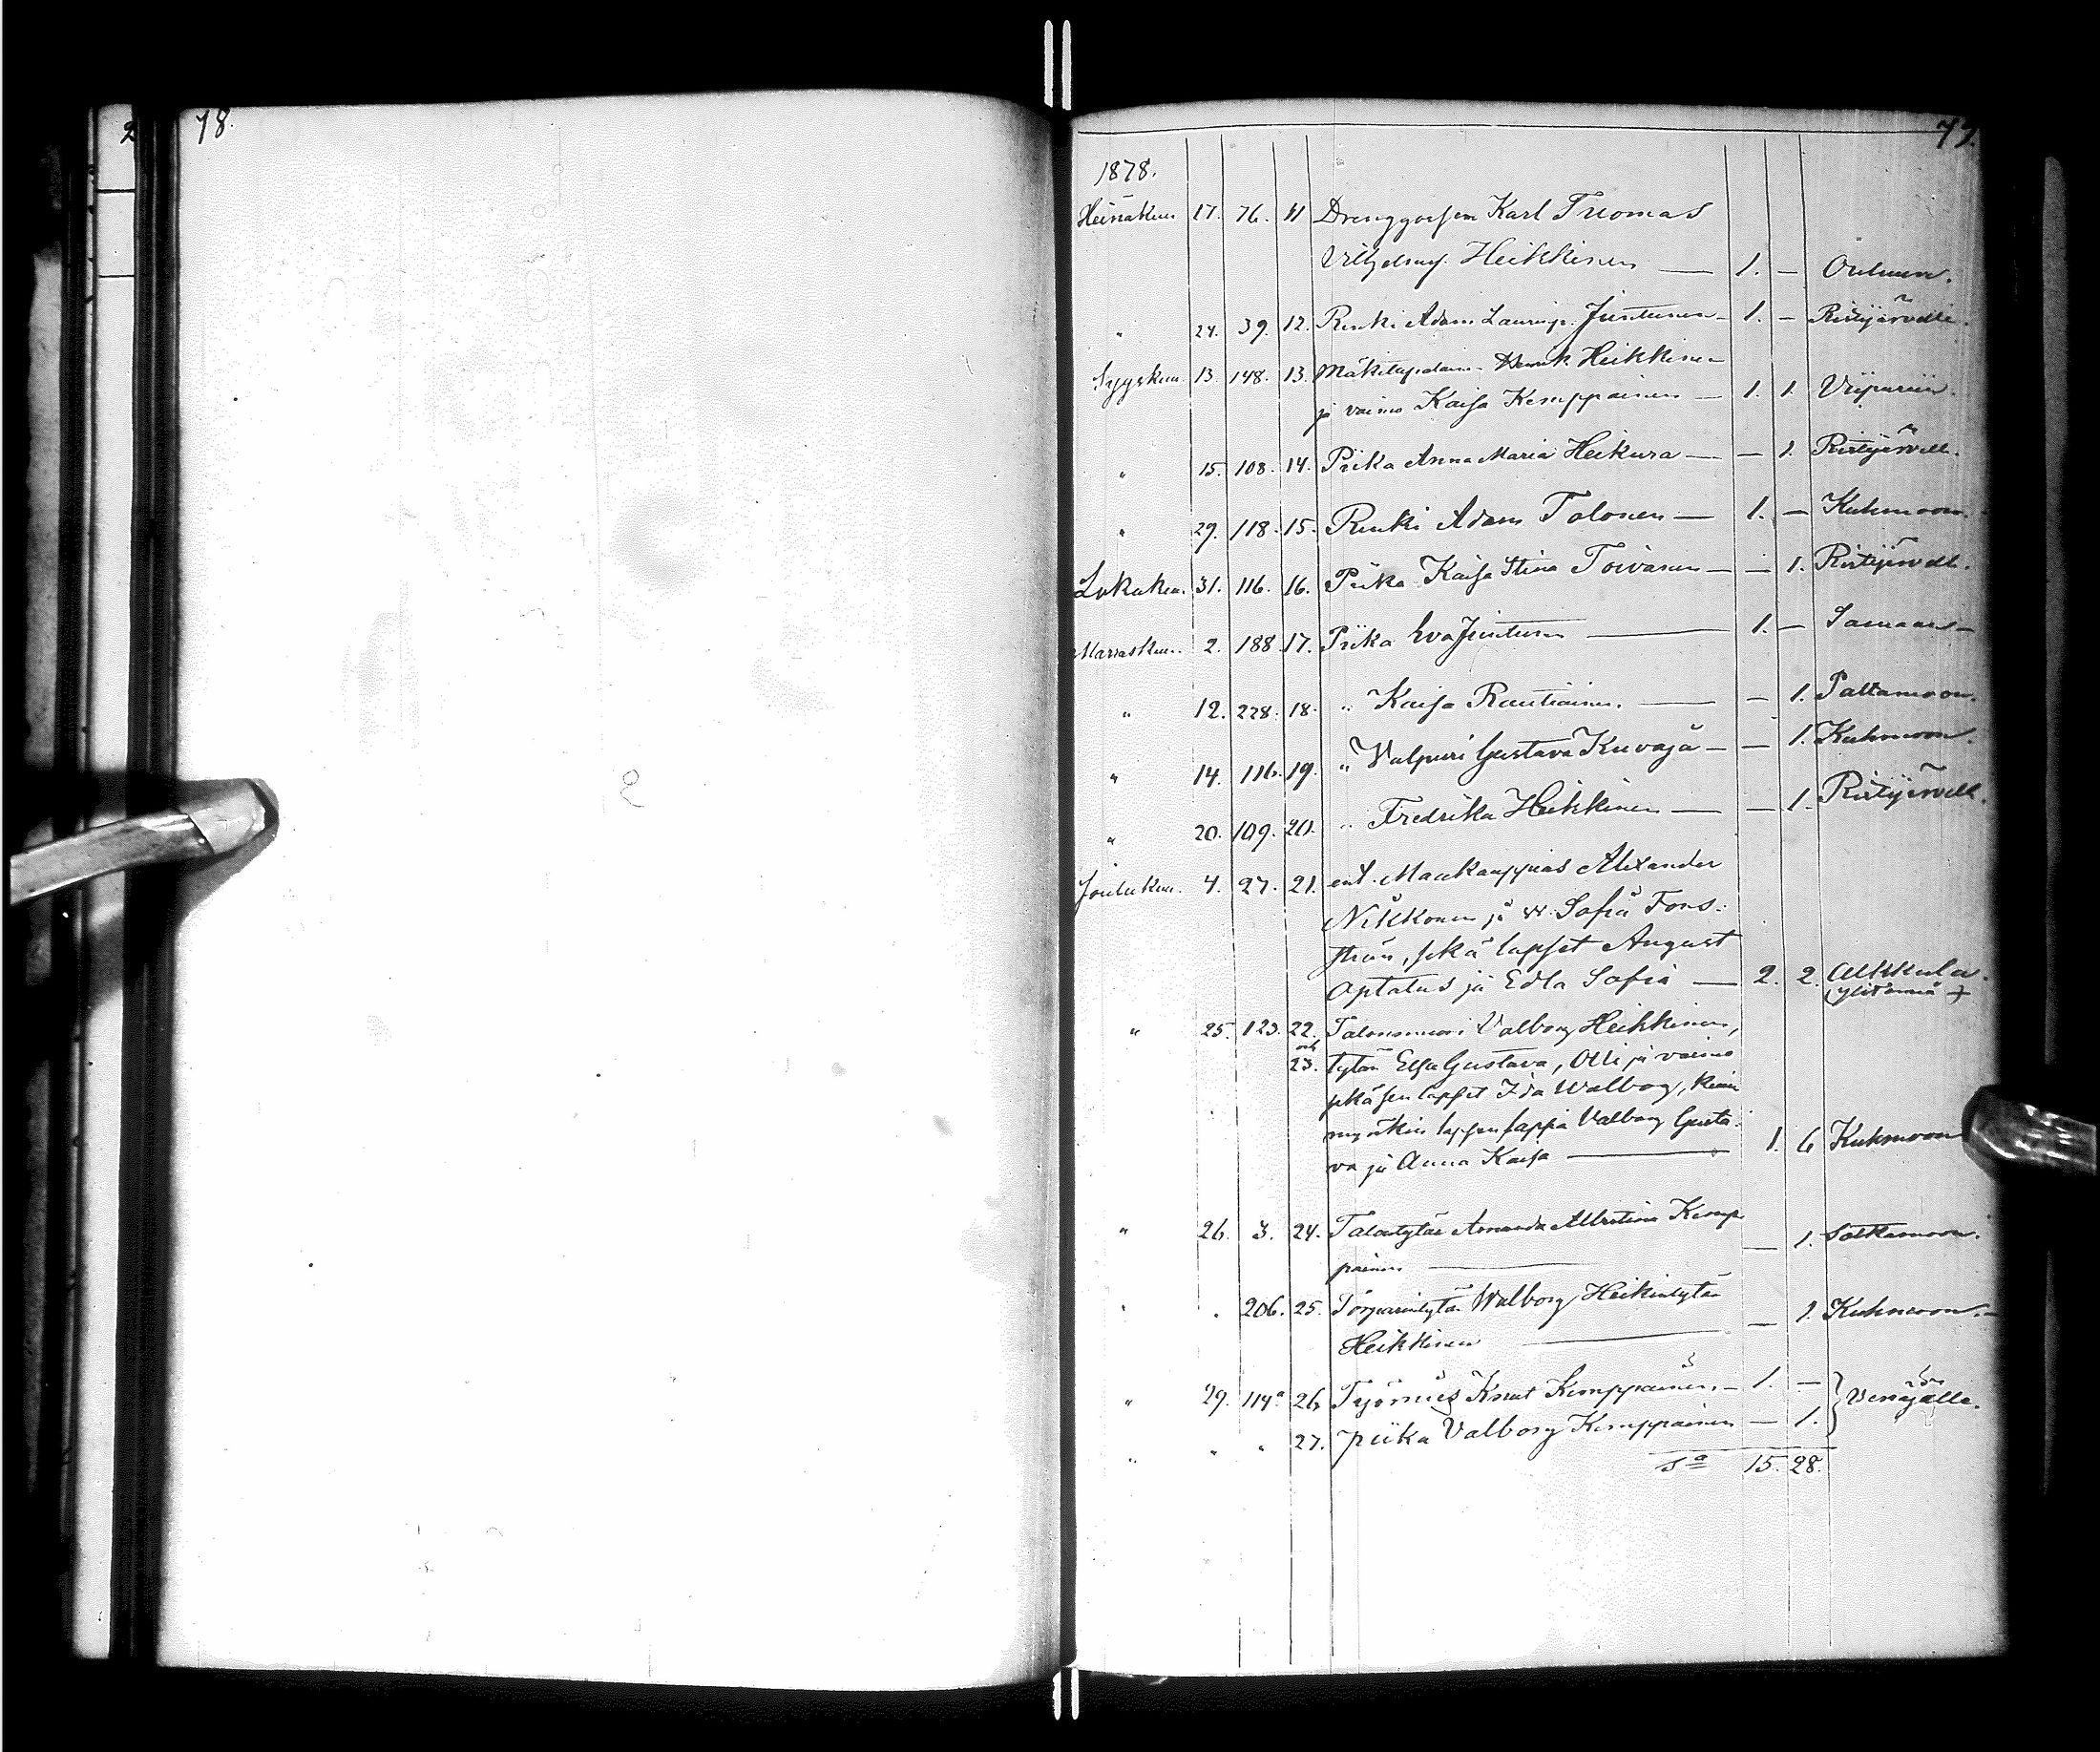 78.
77.
1878.
Heinäkuu 17. 76. 11 Drenggossen Karl Tuomas
Heikkinen — 1. — Ouluun.
" 24. 39. 12. Renki Adam Laurinp. Juntunen — 1. — Ristijärvelle.
Syyskuu. 13. 148. 13. Mäkitupalain. Henrik Heikkinen
ja vaimo Kaisa Kemppainen — 1. 1. Viipuriin.
" 15. 108. 14. Piika Anna Maria Heikura — — 1. Ristijärvell.
" 29. 118. 15. Renki Adam Tolonen — 1. — Kuhmoon.
Lokakuu. 31. 116. 16. Piika Kaisa Stina Toivanen — — 1. Ristijärvell.
Marraskuu. 2. 188. 17. Piika Eva Juntunen — 1. — Samaan —
" 12. 228. 18. " Kaisa Rautiainen. — — 1. Paltamoon.
" 14. 116. 19. " Valpuri Gustava Kuvaja — — 1. Kuhmoon.
" 20. 109. 20. " Fredrika Heikkinen — — 1. Ristijärvell.
Joulukuu. 4. 27. 21. ent. Maakauppias Alexander
Nikkonen ja w. Sofia
sekä lapset August
Optatus ja Edla Sofia — 2. 2. Alkkula.
" 25. 123. 22. Talonmuori Valborg Heikkinen,
och 23. tytär Elsa Gustava, Olli ja vaimo
sekä sen lapset Ida Walborg,
myötkin lapsen lapsia Valborg Gusta-
va ja Anna Kaisa — 1. 6 Kuhmoon
" 26. 3. 24. Talontytär Amanda Albertina Kemp
painen — — 1. Sotkamoon.
" . 206. 25. Torparintytär Walborg Heikintytär
Heikkinen — — 1. Kuhmoon. —
" 29. 114a 26. Työmies Knut Kemppainen. — 1. — } Venäjälle.
" " " 27. piika Valborg Kemppainen — 1.
Sa 15. 28.